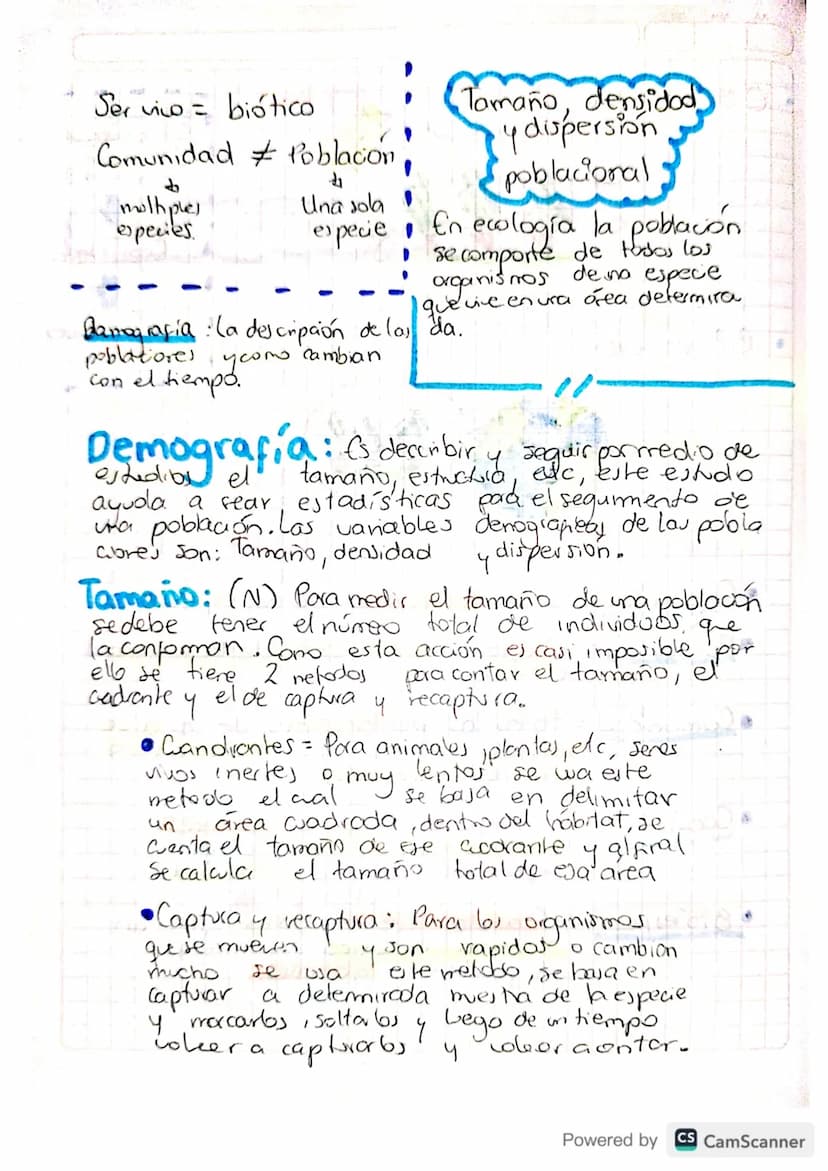 Ser vivo = biótico
Comunidad ≠ Población
multiples especies.
Una sola especie
Tamaño, densidad
y dispersión
poblacional
En ecología la población
se comporte de todos los
organismos de una especie
que vive en una área determina
da.
Demografía: la descripción de las
poblaciones, y como cambian
con el tiempo.
Demografía: Es describir y seguir por medio de
estudios el tamaño, estructura, etc, este estudo
ayuda a sear estadísticas para el seguimento de
una población. Las variables demograficas de las pobla
ciones son: Tamaño, densidad y dispersion.
Tamaño: (N) Para medir el tamaño de una población
se debe tener el número total de individuos, que
la conforman. Como esta acción es casi imposible por
ello se tiene 2 metodos para contar el tamaño, el
cuadrante y el de captura y recaptura.
• Candrantes = Para animales, plantas, etc, seres
vivos inertes o muy lentos se usa este
metodo el cual se basa en delimitar
un área cuadrada, dentro del hábitat, se
cuenta el tamaño de ese cuadrante y al final
se calcula el tamaño total de esa area
• Captura y recaptura: Para los organismos
que se mueven y son rapidos o cambian
mucho se usa este metodo, se basa en
capturar a determinada muestra de la especie
y marcarlos, soltarlos y luego de un tiempo
volver a capturarlos y volver a contar.
Powered by CS CamScanner